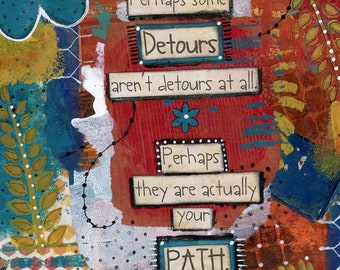 Perhaps some
Detours
aren't detours at all
Perhaps
they are actually
your
PATH